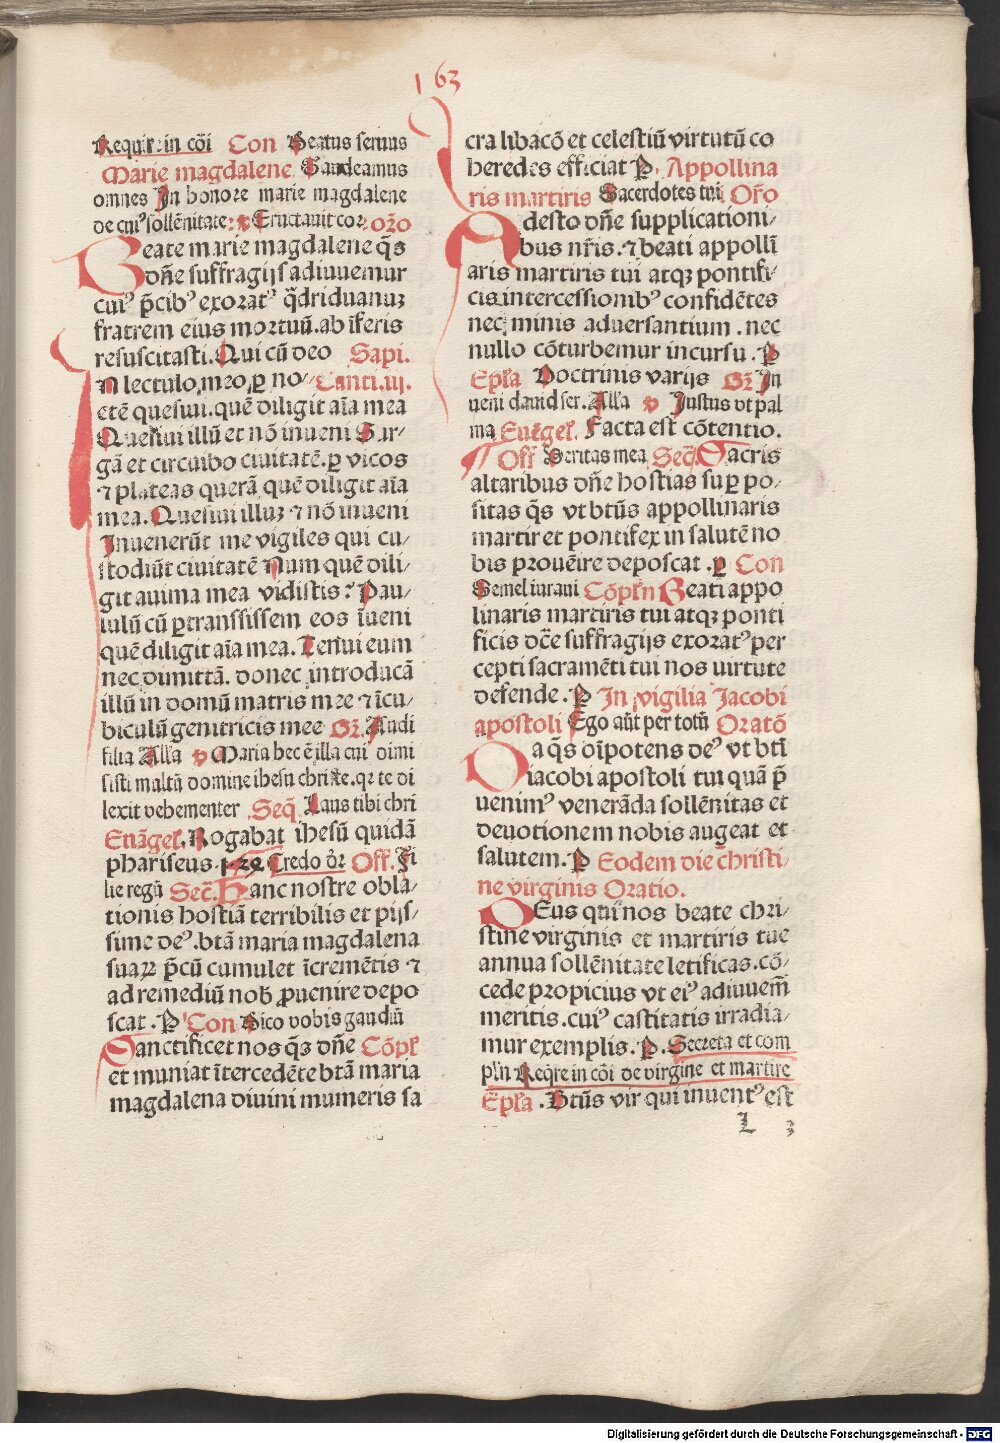 163
Requir̄ in cōi Con Beatus seruus
Marie magdalene Gaudeamus
omnes In honore marie magdalene
de cuiꝰ sollēnitate: ꝟ Eructauit cor or̄o
Beate marie magdalene q̄s
dn̄e suffragijs adiuuemur
cuiꝰ p̄cibꝰ exoratꝰ q̄driduanuꝫ
fratrem eius mortuū. ab īferis
resuscitasti. Qui cū deo Sapi.
In lectulo meo ꝑ no⸗ Canti. iij.
ctē quesiui. quē diligit aīa mea
Quesiui illū et nō inueni Sur⸗
gā et circuibo ciuitatē. ꝑ vicos
⁊ plateas querā quē diligit aīa
mea. Quesiui illuꝫ ⁊ nō inueni
Inuenerūt me vigiles qui cu⸗
stodiūt ciuitatē Num quē dili⸗
git anima mea vidistis? Pau⸗
lulū cū ꝑtranssissem eos īueni
quē diligit aīa mea. Tenui eum
nec dimittā. donec introducā
illū in domū matris mee ⁊ īcu⸗
biculū genitricis mee Gr̄. Audi
filia Alľa ꝟ Maria hec ē illa cui dimi
sisti multū domine ihesu christe. qr te di
lexit vehementer Seq̄. Laus tibi chri
Euāgeľ. Rogabat ihesū quidā
phariseus. Credo ōr Off. Fi
lie regū Secr̄. Hanc nostre obla⸗
tionis hostiā terribilis et pijs⸗
sime deꝰ. btā maria magdalena
suaꝝ p̄cū cumulet īcremētis ⁊
ad remediū nob̄ ꝓuenire depo
scat. P Con Dico vobis gaudiū
Sanctificet nos q̄ꝫ dn̄e Cōpľ
et muniat ītercedēte btā maria
magdalena diuini muneris sa
cra libacō et celestiū virtutū co
heredes efficiat P. Appollina
ris martiris Sacerdotes tui Or̄o
Adesto dn̄e supplicationi⸗
bus nr̄is. ⁊ beati appollī
aris martiris tui atqꝫ pontifi⸗
cis intercessionibꝰ confidētes
nec minis aduersantium. nec
nullo cōturbemur incursu. P
Epľa Doctrinis varijs Gr̄. In
ueni dauid ser. Alľa ꝟ Justus vt pal
ma Euāgeľ. Facta est cōtentio.
Off̄ Veritas mea Secr̄. Sacris
altaribus dn̄e hostias suꝑ po⸗
sitas q̄s vt btūs appollinaris
martir et pontifex in salutē no
bis prouēire deposcat. ꝑ Con
Semel iuraui Cōpľn Beati appo
linaris martiris tui atqꝫ ponti
ficis dn̄e suffragijs exoratꝰ per
cepti sacramēti tui nos uirtute
defende. P In vigilia Jacobi
apostoli Ego aūt per totū Oratō
Da q̄s oīpotens deꝰ vt btī
iacobi apostoli tui quā p̄
uenimꝰ venerāda sollēnitas et
deuotionem nobis augeat et
salutem. P Eodem die christi⸗
ne virginis Oratio.
DEus qui nos beate chri⸗
stine virginis et martiris tue
annua sollēnitate letificas. cō⸗
cede propicius vt eiꝰ adiuuem̄
meritis. cuiꝰ castitatis irradia⸗
mur exemplis. P. Secreta et com
pľn Reqre in cōi de virgine et martire
Epľa. Btūs vir qui inuentꝰ est
L 3
Digitalisierung gefördert durch die Deutsche Forschungsgemeinschaft - DFG